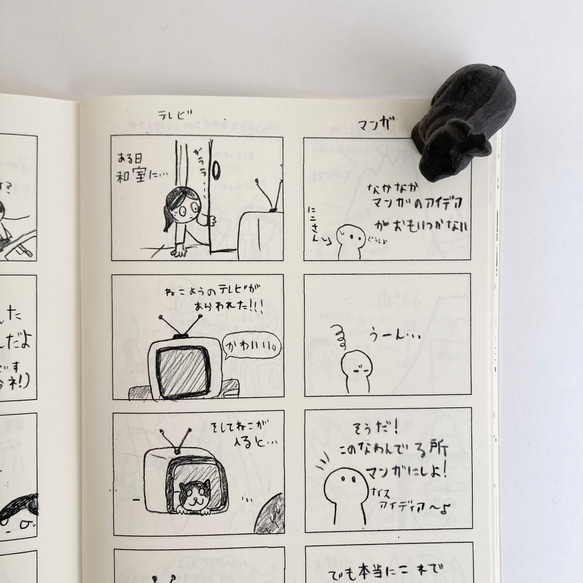 テレビ
ある日
和室に…
ガララ
ねこようのテレビが
あらわれた!!!
かわいい。
そしてねこが
入ると…
マンガ
なかなか
マンガのアイデア
がおもいつかない
にこさん
うーん…
そうだ!
このなやんでる所
マンガにしよ!
ナイス
アイデア〜♪
でも本当にこれで